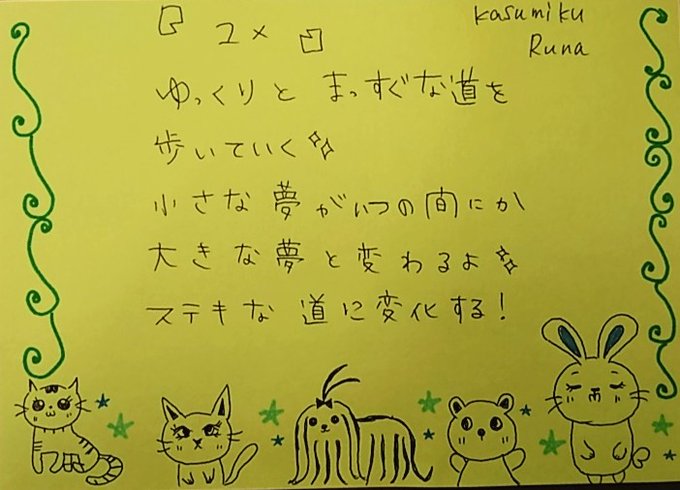 Kasumiku
Runa
『ユメ』
ゆっくりと まっすぐな道を
歩いていく✨
小さな夢がいつの間にか
大きな夢と変わるよ✨
ステキな 道に変化する!